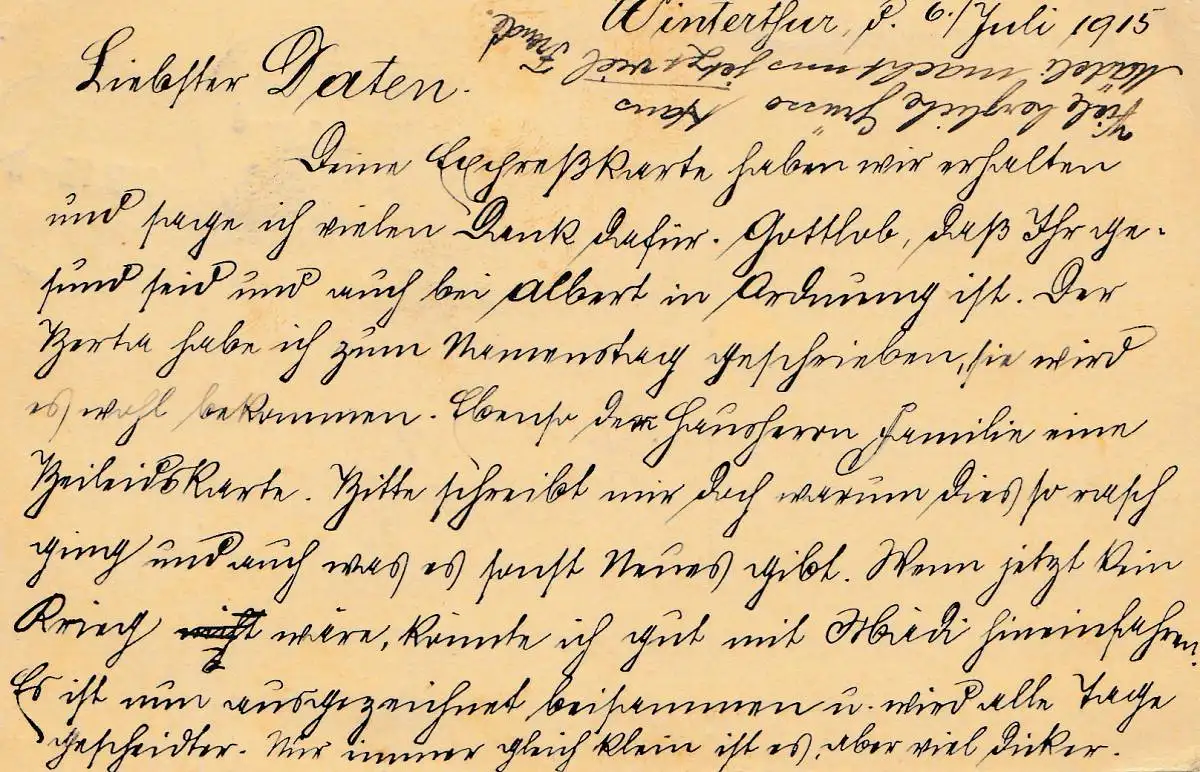 Winterthur, d. 6./Juli 1915
Liebster Daten.
Deine Expreßkarte haben wir erhalten
und sage ich vielen Dank dafür. Gottlob, daß Ihr ge-
sund seid und auch bei Albert in Ordnung ist. Der
Berta habe ich zum Namenstag geschrieben, sie wird
es wohl bekommen. Ebenso der Hausherrn Familie eine
Beileidskarte. Bitte schreibt mir doch warum dies so rasch
ging und auch was es sonst Neues gibt. Wenn jetzt kein
Krieg wäre, könnte ich gut mit Mädi hineinfahren.
Es ist nun ausgezeichnet beisammen u. wird alle Tage
gescheidter. Nur immer gleich klein ist es, aber viel dicker.
Viele herzliche Grüsse Hans
Mädeli macht uns jetzt viel
Freude.